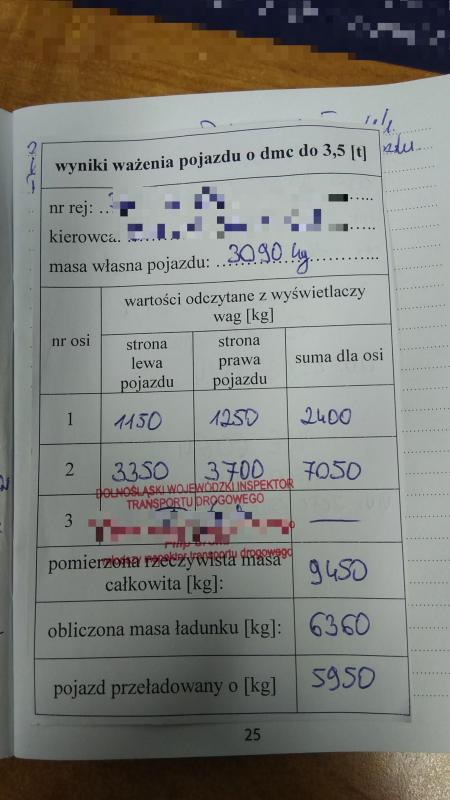 wyniki ważenia pojazdu o dmc do 3,5 [t]
nr rej:
kierowca:
masa własna pojazdu: 3090 kg
nr osi
wartości odczytane z wyświetlaczy
wag [kg]
strona
lewa
pojazdu
strona
prawa
pojazdu
suma dla osi
1 1150 1250 2400
2 3350 3700 7050
DOLNOŚLĄSKI WOJEWÓDZKI INSPEKTOR
TRANSPORTU DROGOWEGO
3 —
młodszy inspektor transportu drogowego
pomierzona rzeczywista masa
całkowita [kg]: 9450
obliczona masa ładunku [kg]: 6360
pojazd przeładowany o [kg] 5950
25